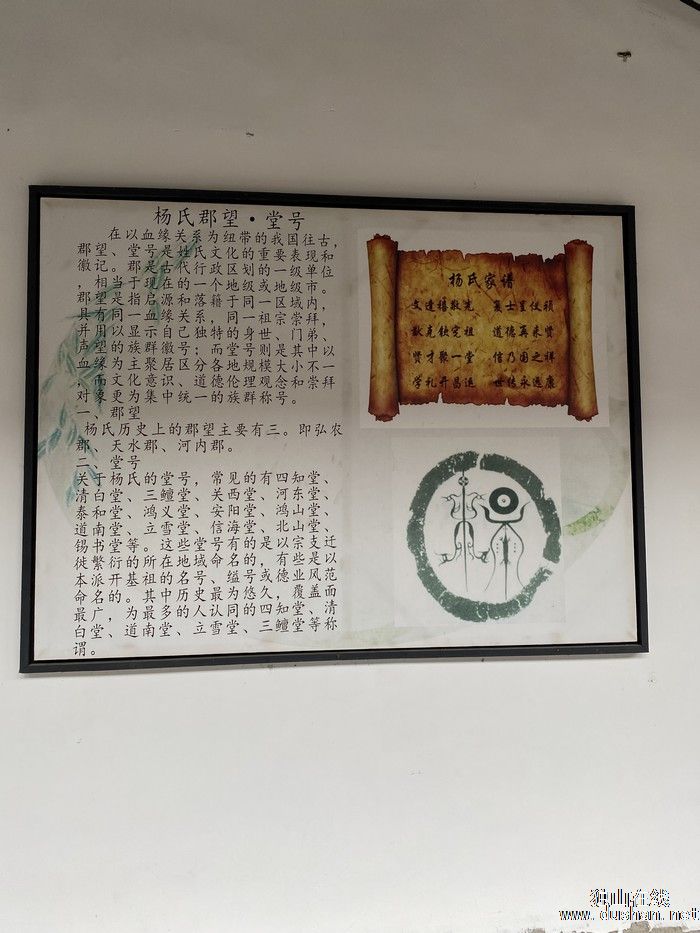 杨氏郡望·堂号
在以血缘关系为纽带的我国往古，
郡望、堂号是姓氏文化的重要表现和
徽记。郡是古代行政区划的一级单位
，相当于现在的一个地级或地级市。
郡望是指启源和落籍于同一区域内，
具有同一血缘关系，同一祖宗崇拜，
并用以显示自己独特的身世、门弟、
声望的族群徽号；而堂号则是其中以
血缘为主聚居区分各地规模大小不一
，而文化意识、道德伦理观念和崇拜
对象更为集中统一的族群称号。
一、郡望
杨氏历史上的郡望主要有三。即弘农
郡、天水郡、河内郡。
二、堂号
关于杨氏的堂号，常见的有四知堂、
清白堂、三鱣堂、关西堂、河东堂、
泰和堂、鸿义堂、安阳堂、鸿山堂、
道南堂、立雪堂、信海堂、北山堂、
锡书堂等。这些堂号有的是以宗支迁
徙繁衍的所在地域命名的，有些是以
本派开基祖的名号、缢号或德业风范
命名的。其中历史最为悠久，覆盖面
最广，为最多的人认同的四知堂、清
白堂、道南堂、立雪堂、三鱣堂等称
谓。
杨氏家谱
文达禧敬光
道德再来贤
贤才聚一堂 信乃国之祥
学礼开昌运 世传永远康
独山在线
www.dushan.net